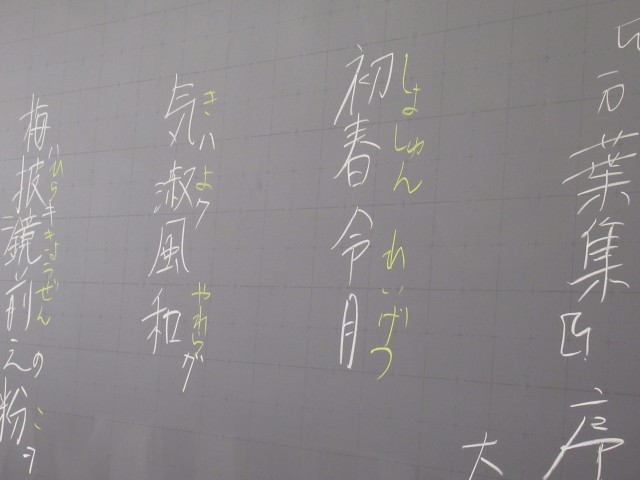 万葉集』序
大
初春令月
しょしゅん れいげつ
気ハ淑ク風和ガ
き よ やわら
梅ハ披キ鏡前之の粉ヲ
ひら きょうぜん こ